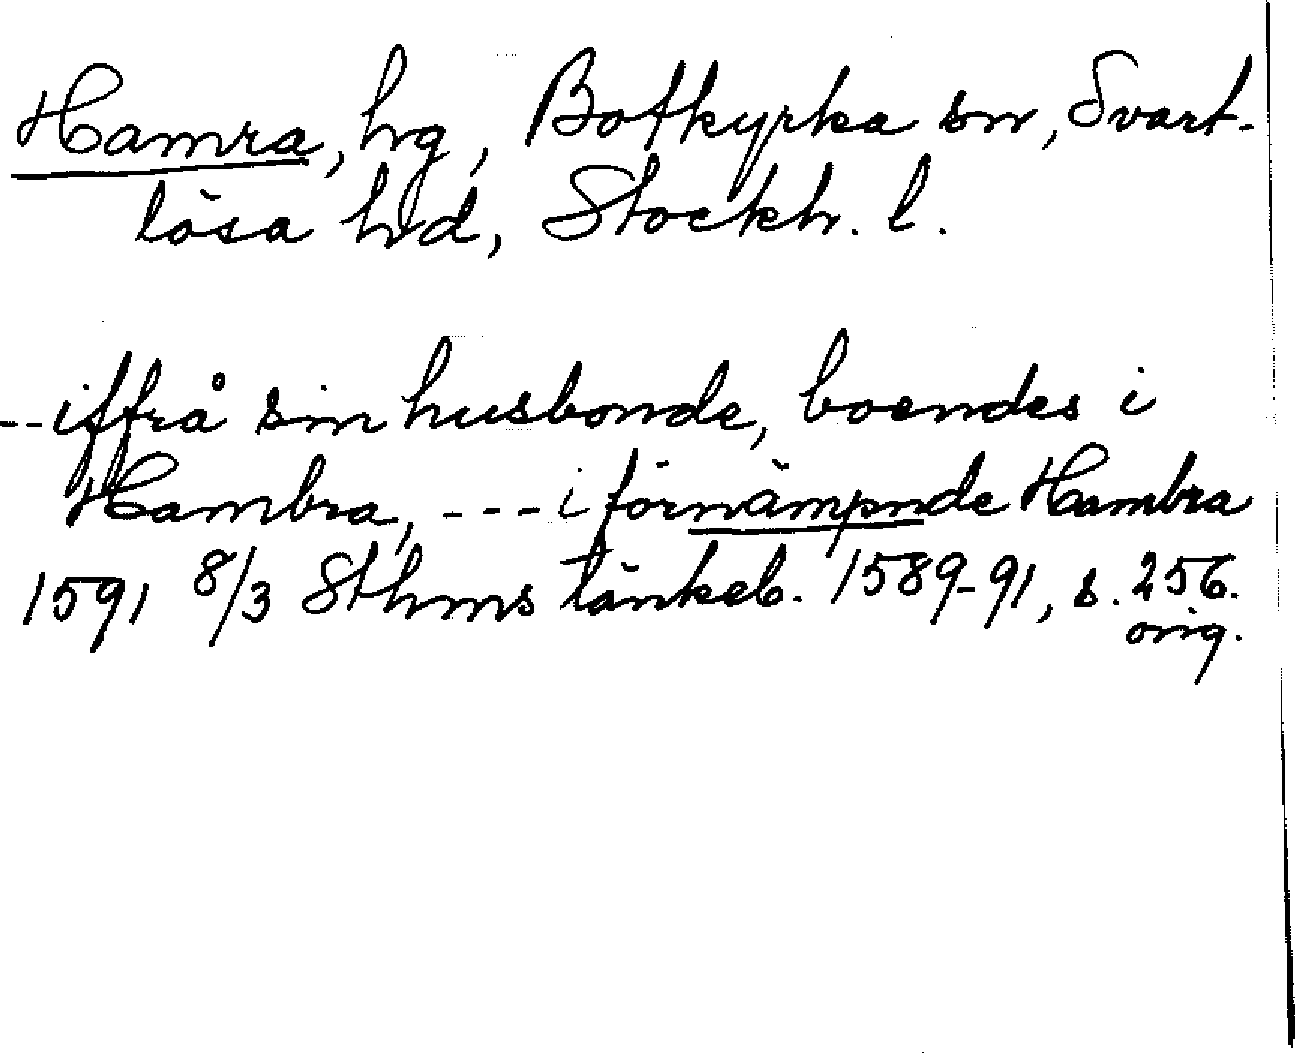 Hamra, hg, Botkyrka sn, Svart-
lösa hd, Stockh. l.
--iffrå sin husbonde, boendes i
Hambra, --- i förnämpnde Hambra
1591 8/3 Sthms tänkeb. 1589-91, s. 256.
orig.